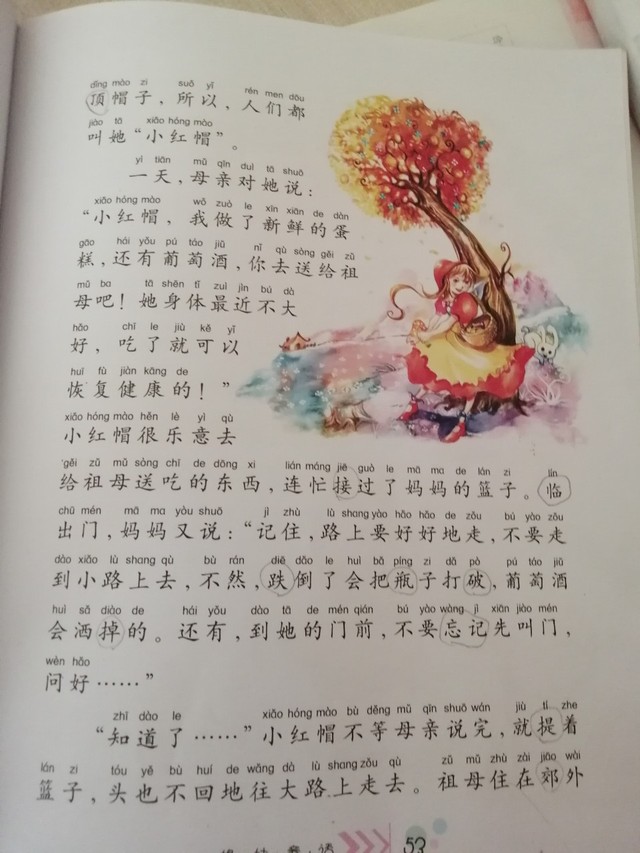 dǐng mào zi suǒ yǐ rén men dōu
顶帽子，所以，人们都
jiào tā xiǎo hóng mào
叫她“小红帽”。
yì tiān mǔ qīn duì tā shuō
一天，母亲对她说：
xiǎo hóng mào wǒ zuò le xīn xiān de dàn
“小红帽，我做了新鲜的蛋
gāo hái yǒu pú táo jiǔ nǐ qù sòng gěi zǔ
糕，还有葡萄酒，你去送给祖
mǔ ba tā shēn tǐ zuì jìn bú dà
母吧！她身体最近不大
hǎo chī le jiù kě yǐ
好，吃了就可以
huī fù jiàn kāng de
恢复健康的！”
xiǎo hóng mào hěn lè yì qù
小红帽很乐意去
gěi zǔ mǔ sòng chī de dōng xi lián máng jiē guò le mā ma de lán zi lín
给祖母送吃的东西，连忙接过了妈妈的篮子。临
chū mén mā ma yòu shuō jì zhù lù shang yào hǎo hǎo de zǒu bú yào zǒu
出门，妈妈又说：“记住，路上要好好地走，不要走
dào xiǎo lù shang qù bù rán diē dǎo le huì bǎ píng zi dǎ pò pú táo jiǔ
到小路上去，不然，跌倒了会把瓶子打破，葡萄酒
huì sǎ diào de hái yǒu dào tā de mén qián bú yào wàng jì xiān jiào mén
会洒掉的。还有，到她的门前，不要忘记先叫门，
wèn hǎo
问好……”
zhī dào le xiǎo hóng mào bù děng mǔ qīn shuō wán jiù tí zhe
“知道了……”小红帽不等母亲说完，就提着
lán zi tóu yě bù huí de wǎng dà lù shang zǒu qù zǔ mǔ zhù zài jiāo wài
篮子，头也不回地往大路上走去。祖母住在郊外
53